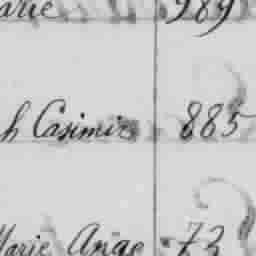 arie 989
h Casimir 885
Marie Ange 73